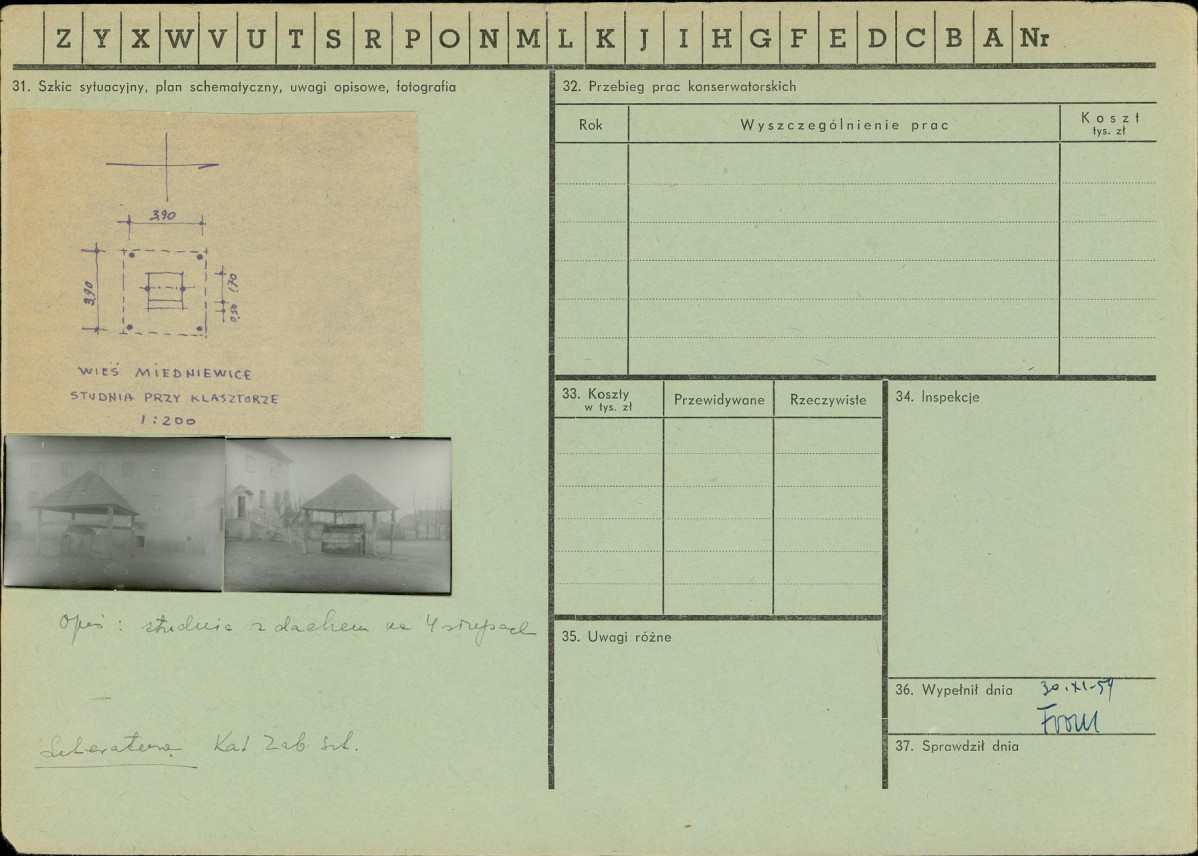 Z Y X W V U T S R P O N M L K J I H G F E D C B A Nr
31. Szkic sytuacyjny, plan schematyczny, uwagi opisowe, fotografia
3.90
3.90
1.70
0.50
WIEŚ MIEDNIEWICE
STUDNIA PRZY KLASZTORZE
1:200
Opis: studnia z dachem na 4 słupach
Literatura Kat Zab Szt.
32. Przebieg prac konserwatorskich
Rok
Wyszczególnienie prac
Koszt
tys. zł
33. Koszty
w tys. zł
Przewidywane
Rzeczywiste
34. Inspekcje
35. Uwagi różne
36. Wypełnił dnia 30.XI-59
37. Sprawdził dnia